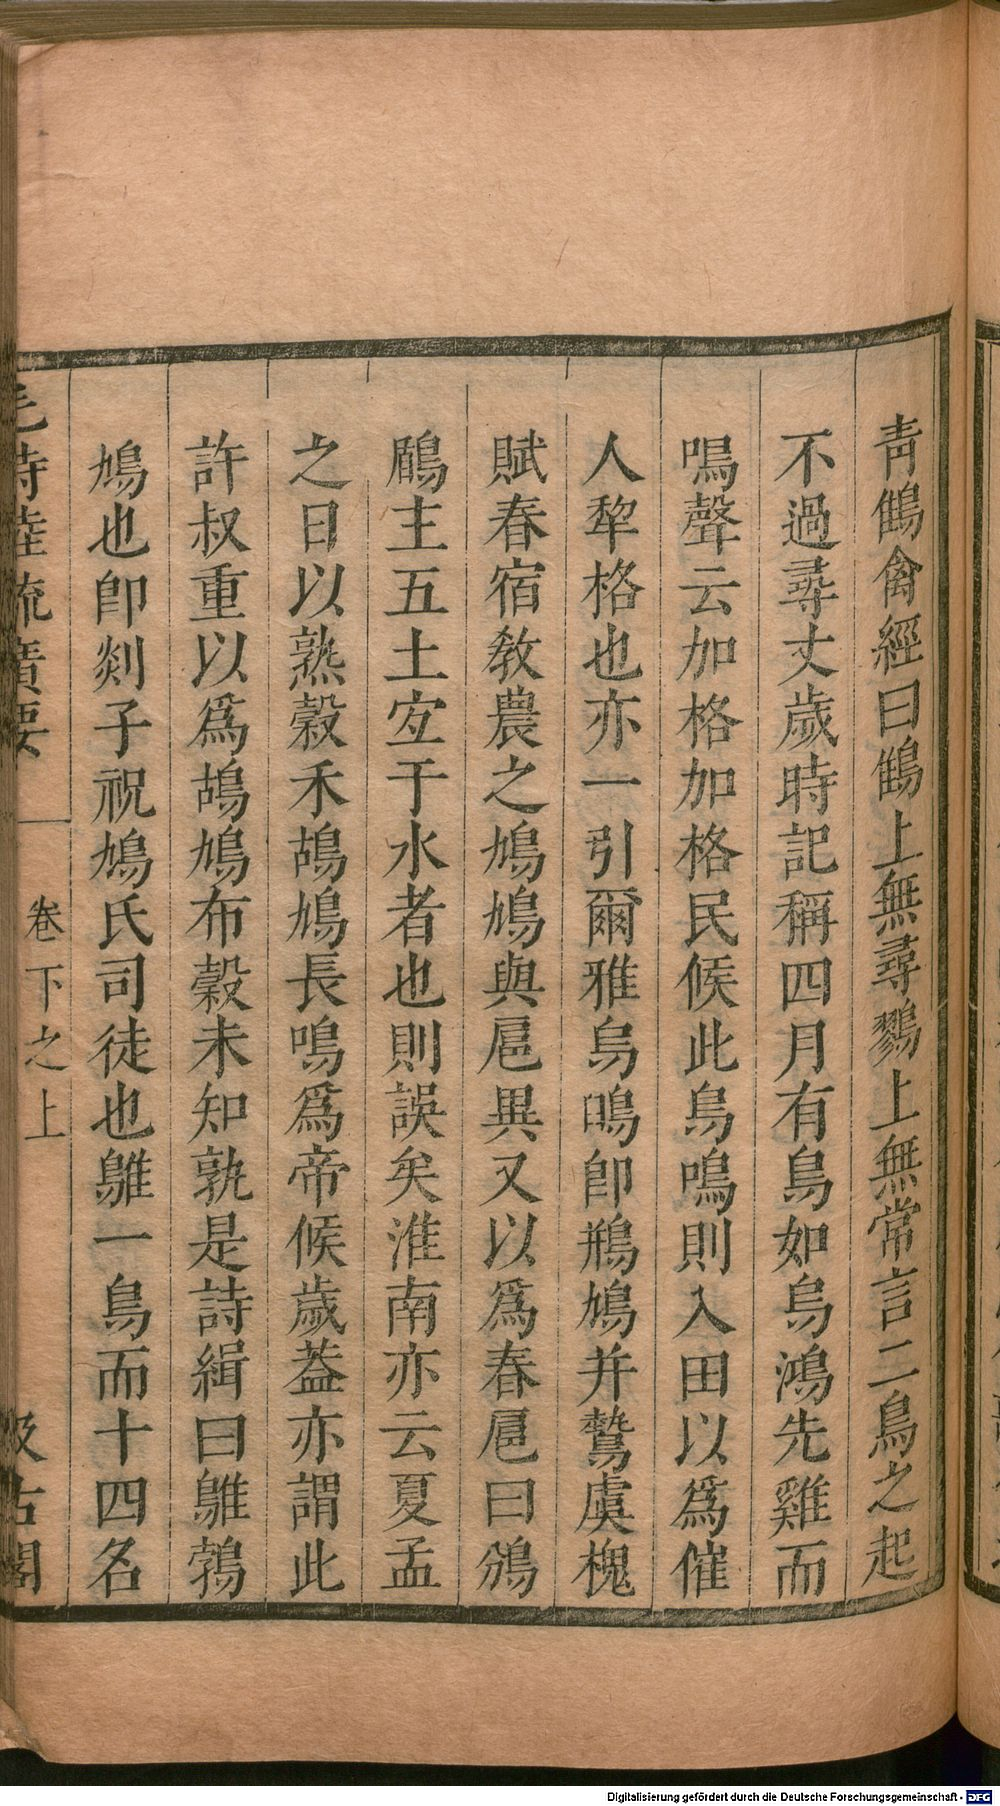 青鶴禽經曰鶴上無尋鷚上無常言二鳥之起
不過尋丈歲時記稱四月有鳥如烏鴻先雞而
鳴聲云加格加格民候此鳥鳴則入田以爲催
人犂格也亦一引爾雅烏鳴卽鵧鳩并鶩虞槐
賦春宿敎農之鳩鳩與扈異又以爲春扈曰鳻
鶥主五土宐于水者也則誤矣淮南亦云夏孟
之日以熟穀禾鴣鳩長鳴爲帝候歲葢亦謂此
許叔重以爲鴣鳩布穀未知孰是詩緝曰鵻鶉
鳩也卽剡子祝鳩氏司徒也鵻一鳥而十四名
毛詩陸疏廣要
卷下之上
汲古閣
Digitalisierung gefördert durch die Deutsche Forschungsgemeinschaft - DFG